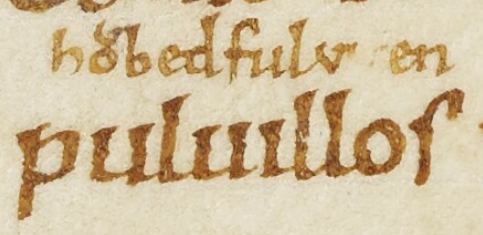 hoͮbedfulv en
puluilloſ